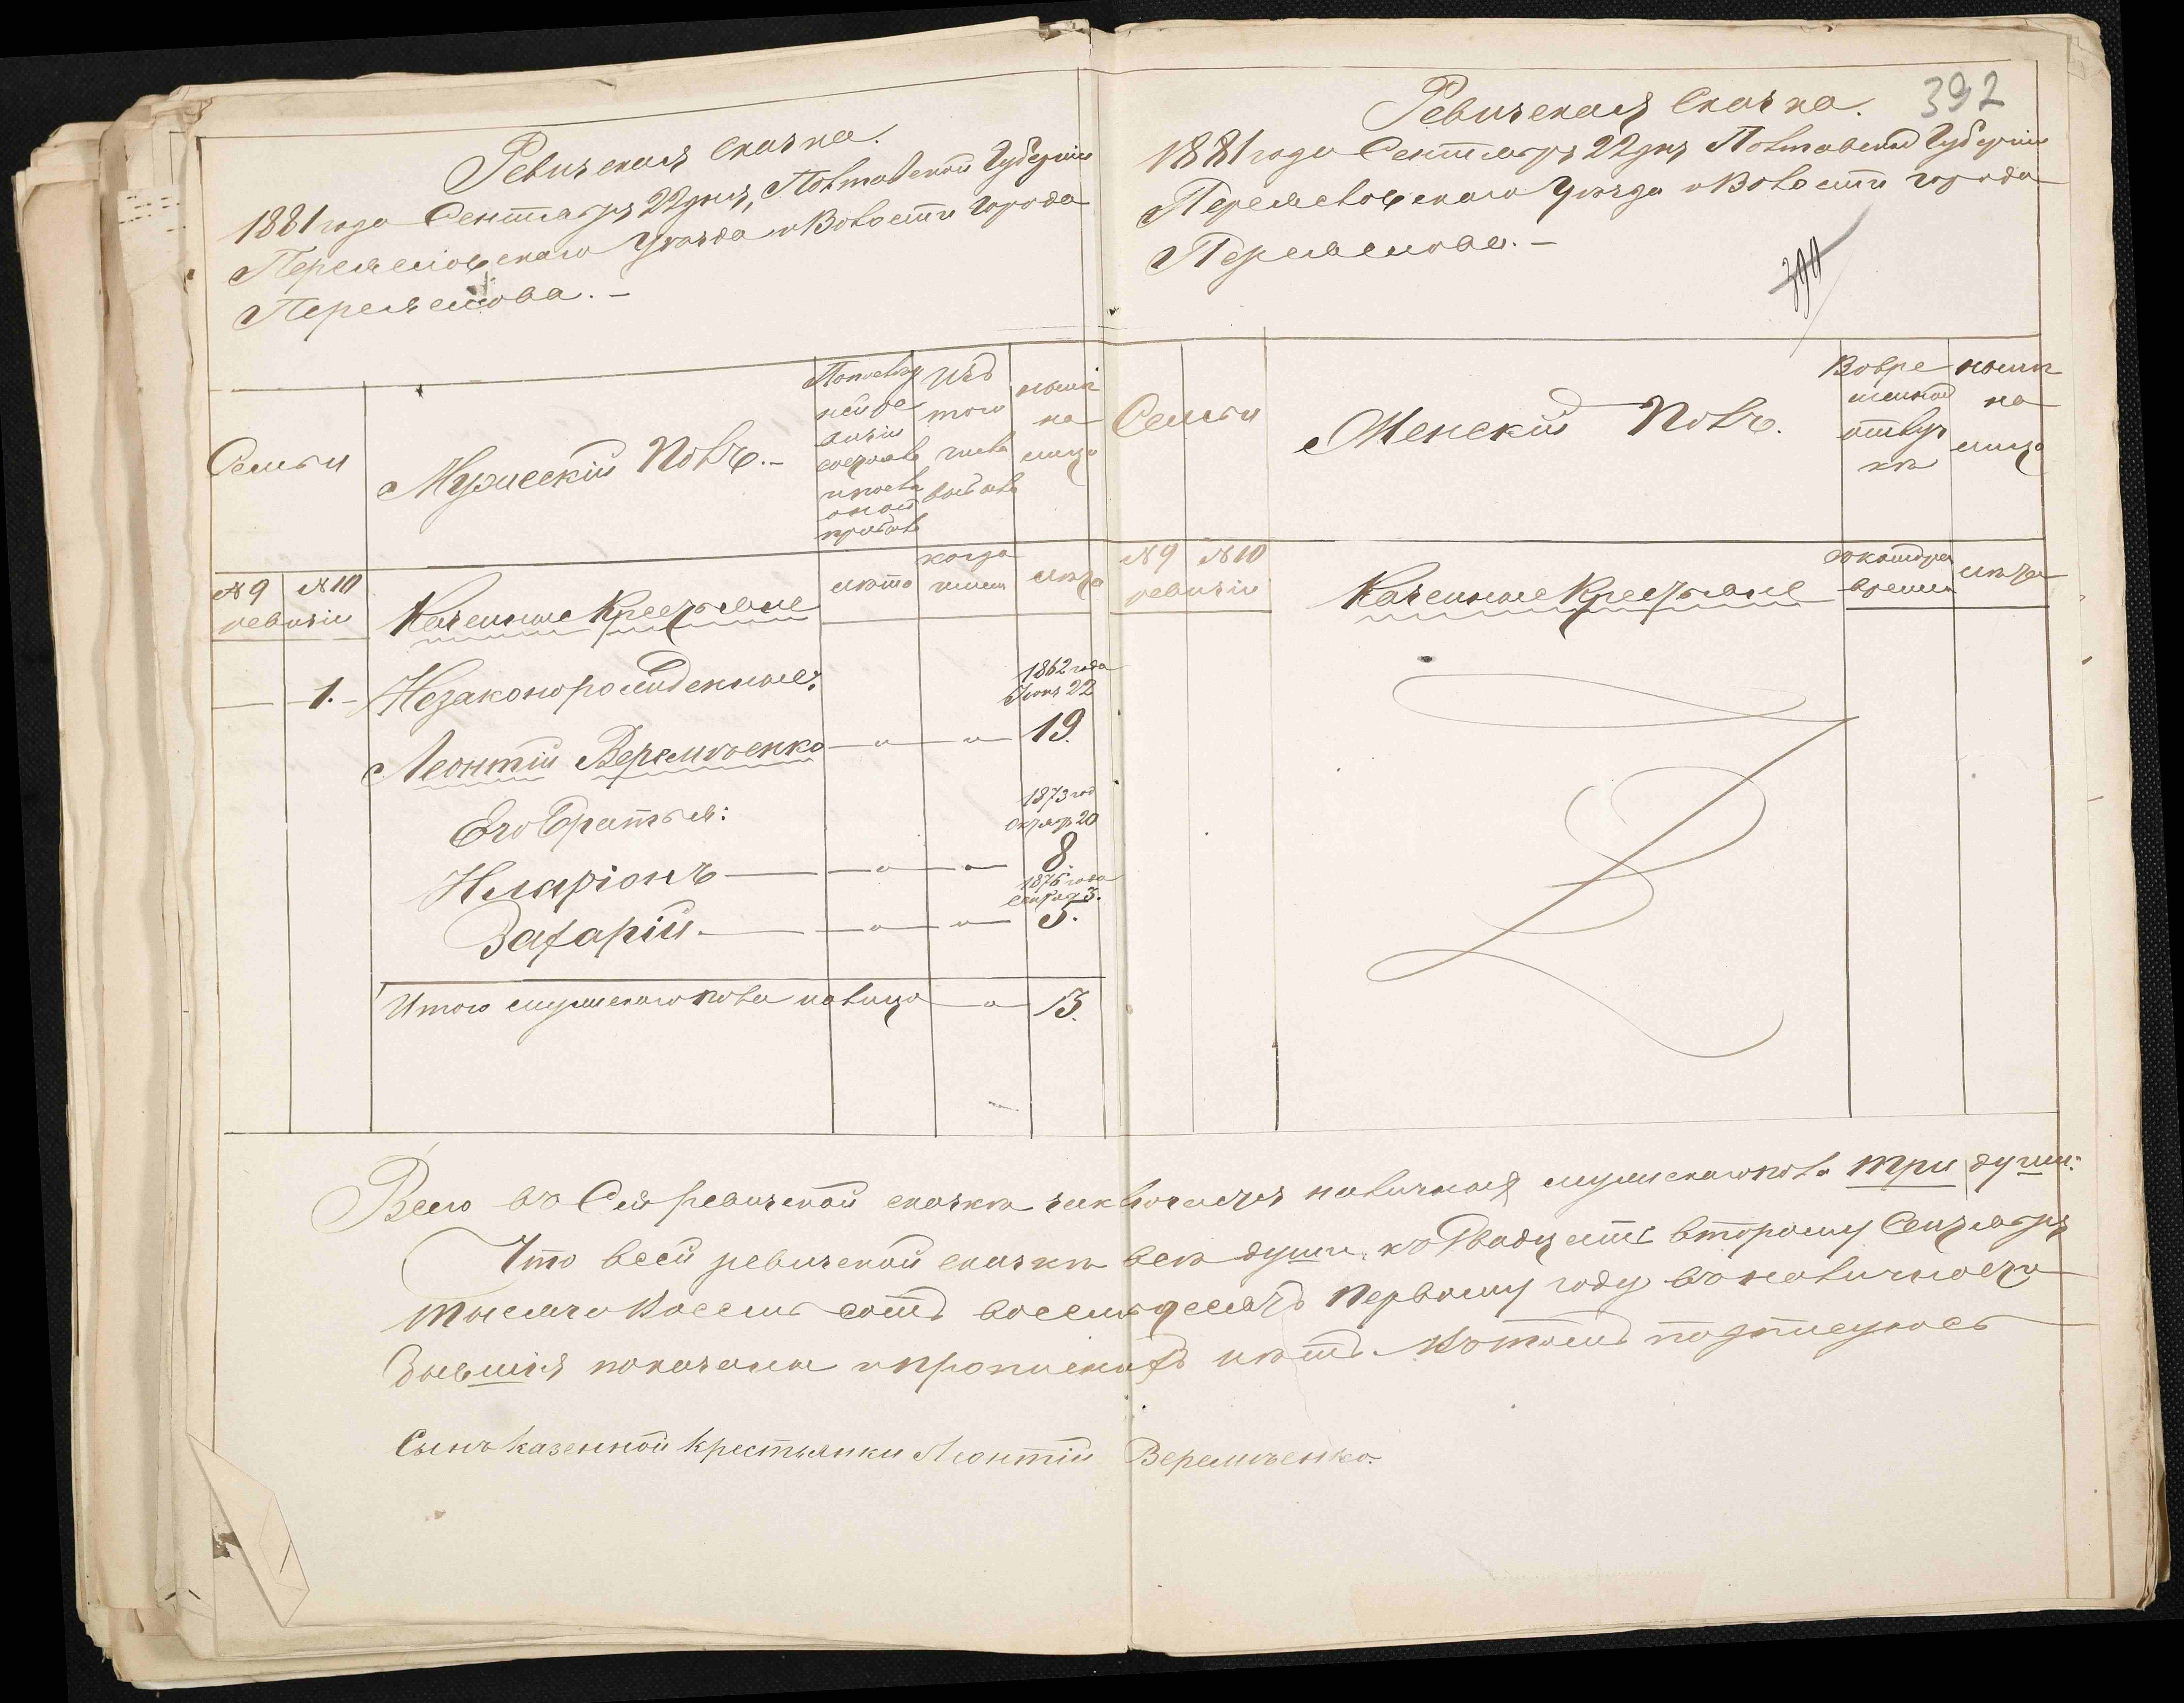 Ревизская сказка.
1881 года Сентября 22 дня, Полтавской Губерніи
Переяславскаго Уѣзда и Волости Города
Переяслова. -
Семьи
Мужескій Полъ. -
По послѣд
ней ре
визіи
состояло
и послѣ
оной
прибыло
Изъ
того
числа
выбыло
нынѣ
на
лицо
№ 9 № 10
ревизіи
Казенные Крестьяне
лѣта
когда
именно
лѣта
1. - Незаконорожденные:
1862 года
Іюня 22
Леонтій Веремѣенко — „ — „ — 19.
Его братья:
1873 год
октяр 20
Иларіонъ — „ — „ — 8
1876 года
сентяб 3.
Захарій. — „ — „ — 5.
Итого мужескаго пола на лицо — „ — 3.
392
Ревизская Сказка.
1881 года Сентября 22 дня Полтавской Губерніи
Переяславскаго Уѣзда и Волости города
Переяслова. -
Семьи
Женскій Полъ.
Во вре
менной
отлуч
кѣ
нынѣ
на
лицо
№ 9 № 10
ревизіи
Казенные Крестьяне
съ котораго
времени
лѣта
Всего въ Сей ревизской сказкѣ заключается наличныхъ мужескаго пола три души:
Что в сей ревизской сказкѣ всѣ души, къ Двадцать второму Сентября
тысяча восемь сотъ восемьдесятъ первому году въ наличности
бывшія показаны и прописныхъ нѣтъ. Въ томъ подписуюсь
Сынъ казенной крестьянки Леонтій Веремѣенко.